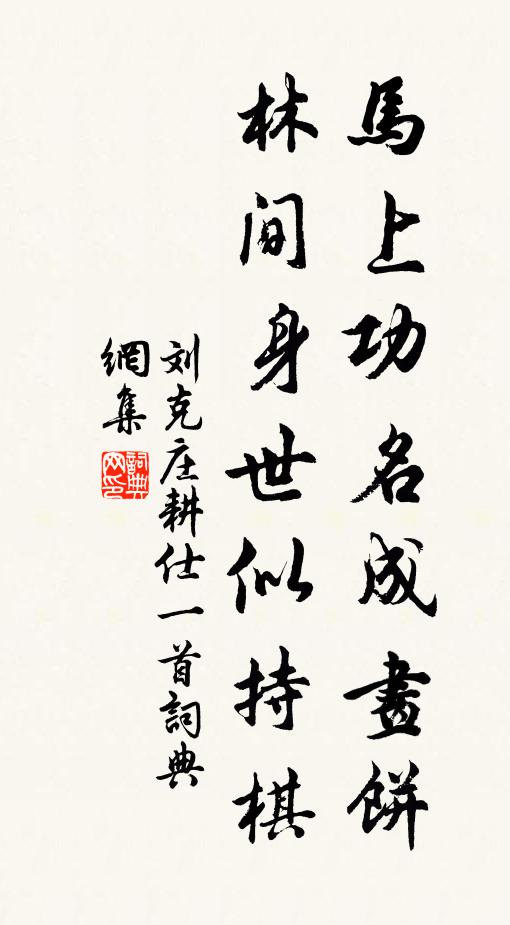 馬上功名成畫餅
林间身世似持棋
刘克庄耕仕一首詞典
網集
詞典網印